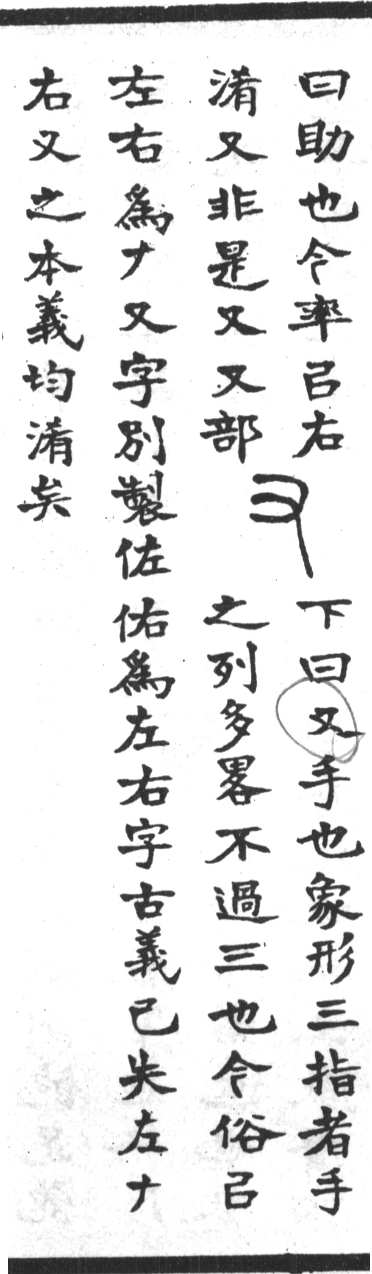 曰助也今率㠯右
淆又非是又又部
𠂇
下曰又手也象形三指者手
之列多畧不過三也今俗㠯
左右為𠂇又字別製佐佑為左右字古義已失左𠂇
右又之本義均淆矣